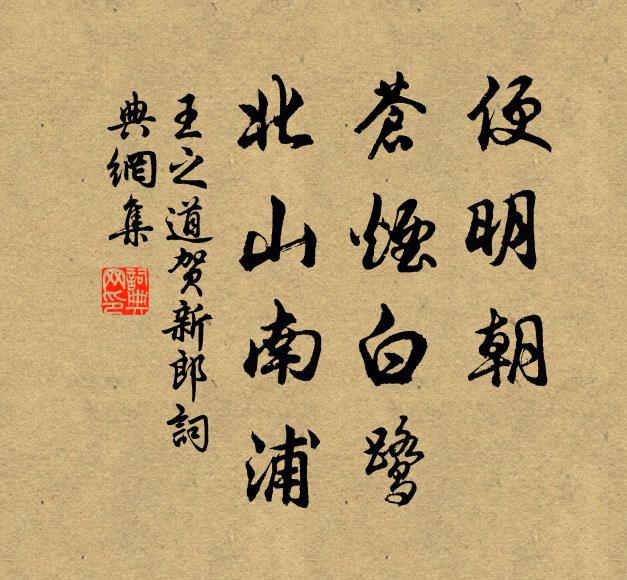 便明朝
蒼煙白鷺
北山南浦
王之道賀新郎詞
典網集
詞典网印